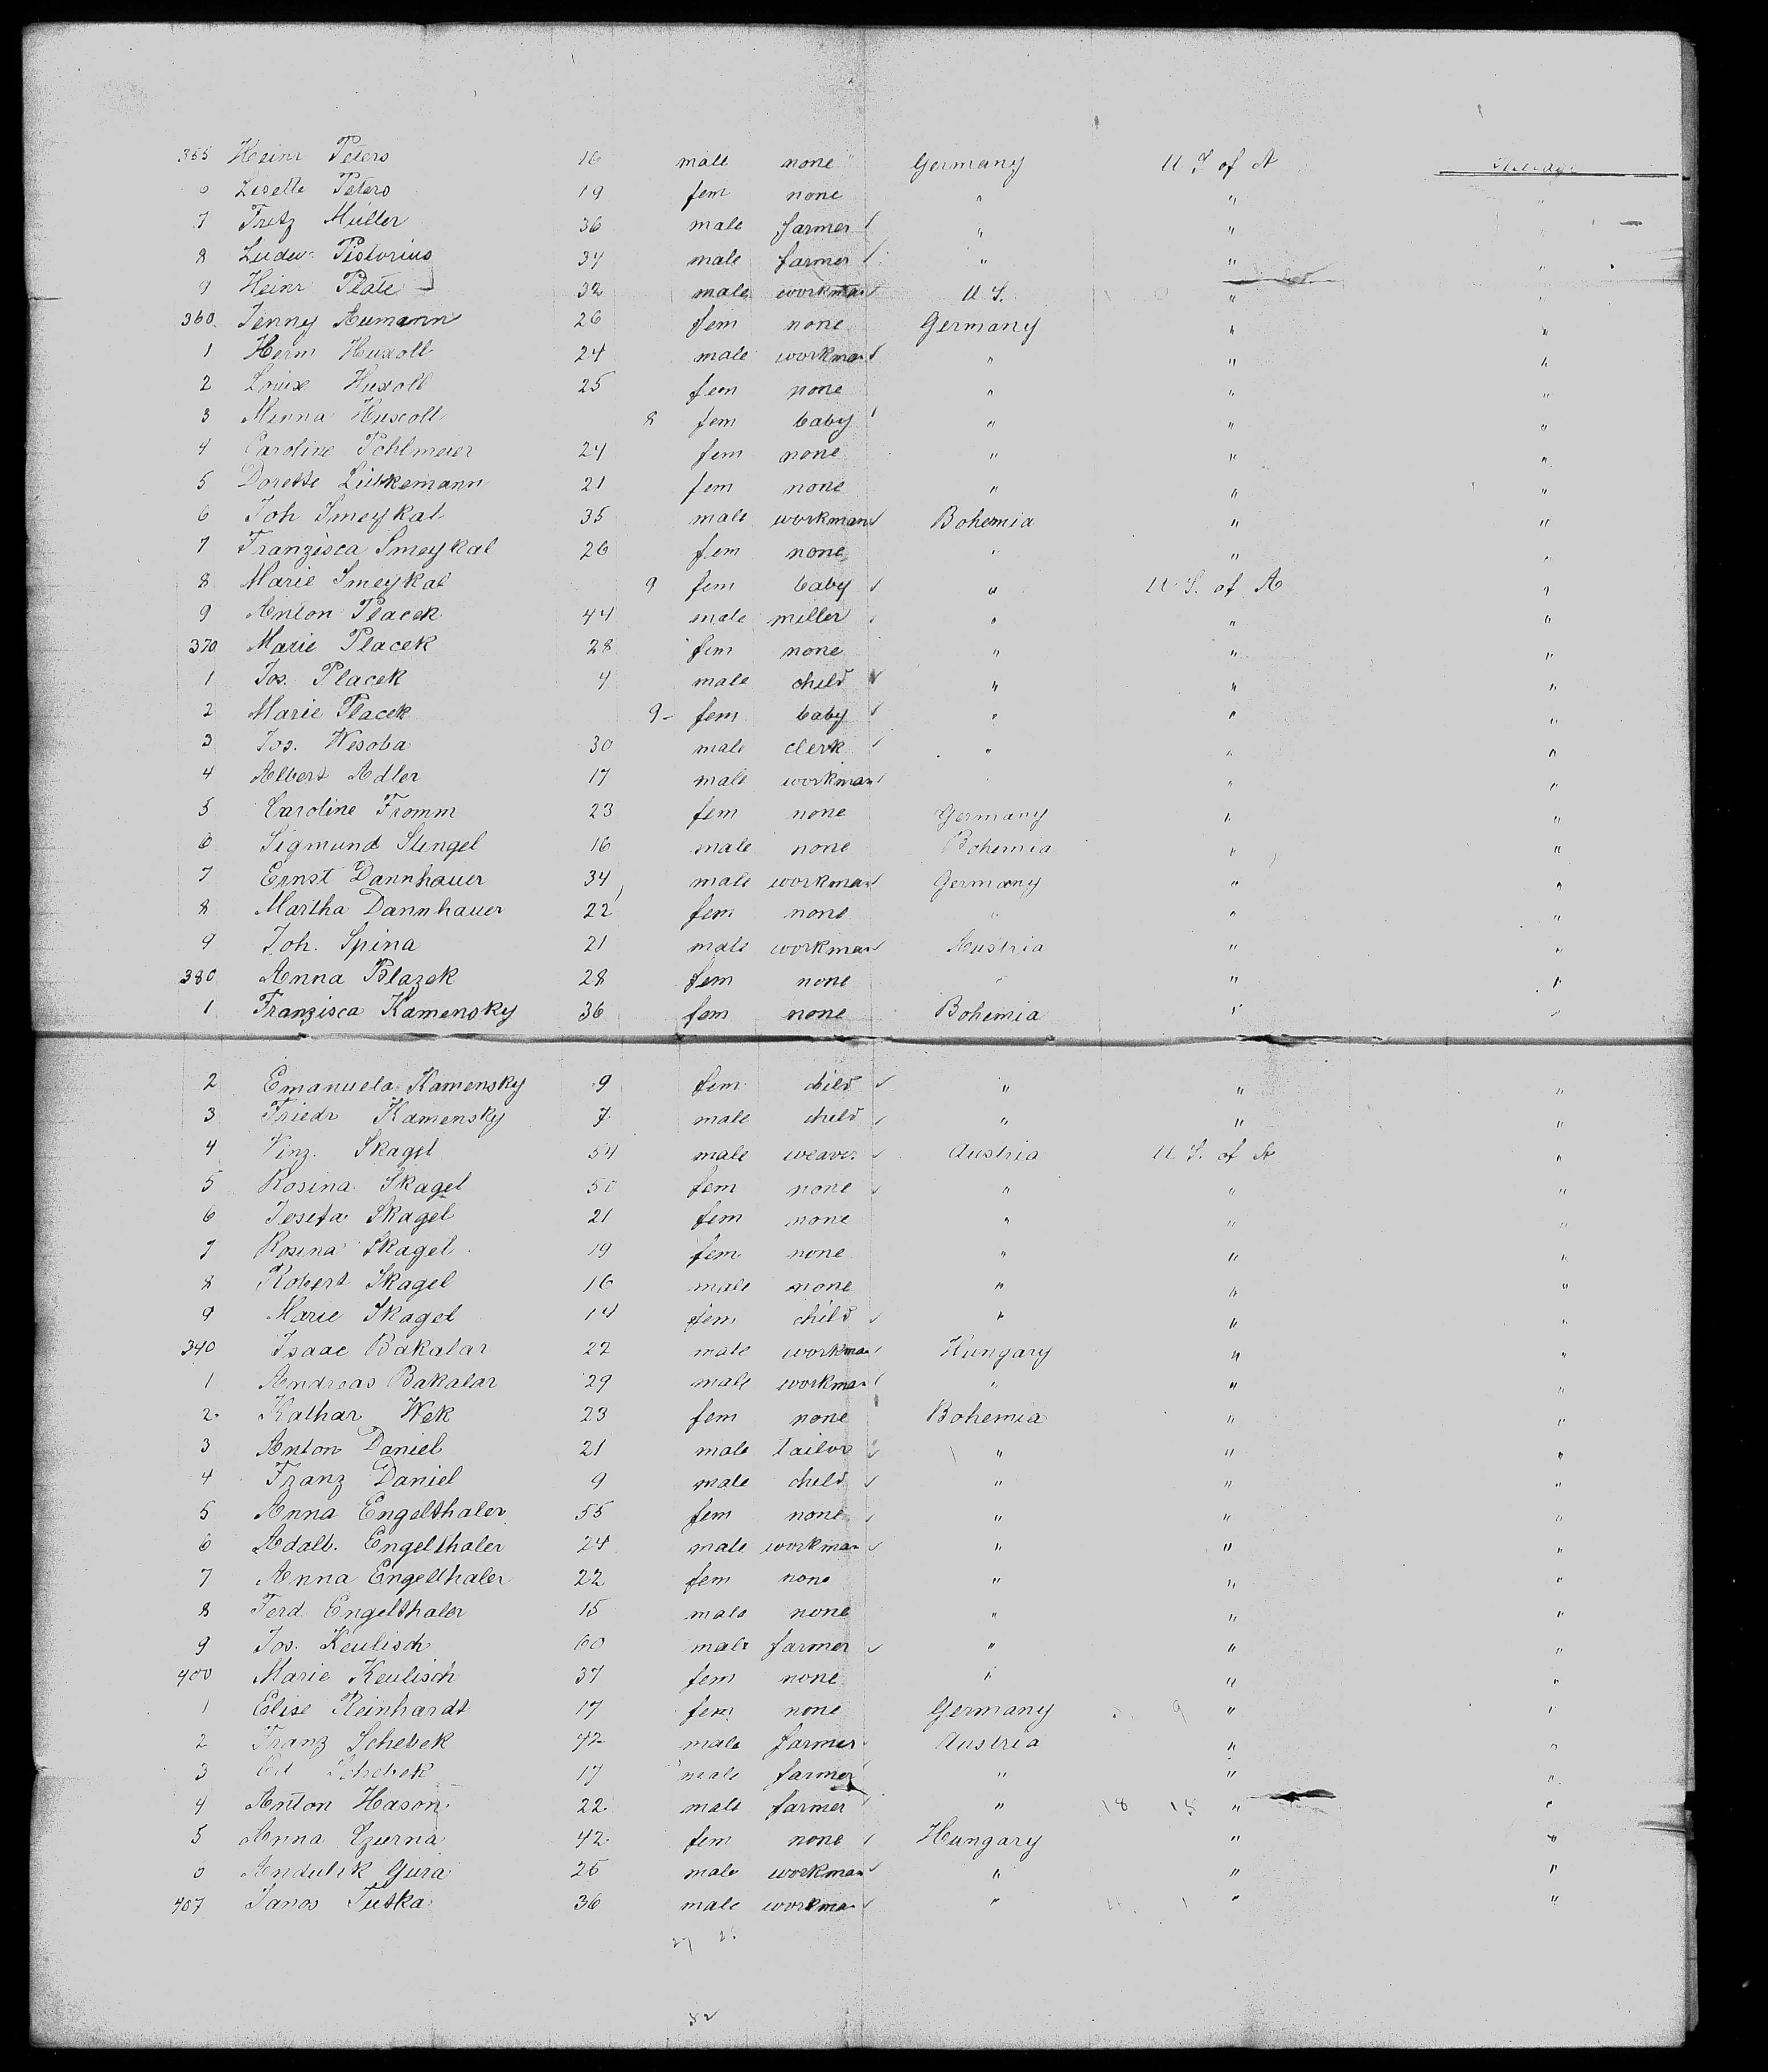 355 Heinr Peters 16 male none Germany U S of A Steerage
6 Lisette Peters 19 fem none " " "
7 Fritz Müller 36 male farmer " "
8 Ludw. Pistorius 34 male farmer " " "
9 Heinr Plate 32 male workman U S. " "
360 Jenny Aumann 26 fem none Germany " "
1 Herm Huxoll 24 male workman " " "
2 Louise Huxoll 25 fem none " " "
3 Minna Huxoll 8 fem baby " " "
4 Caroline Pohlmeier 24 fem none " " "
5 Dorette Lükemann 21 fem none " " "
6 Joh Smeykal 35 male workman Bohemia " "
7 Franzisca Smeykal 26 fem none " " "
8 Marie Smeykal 9 fem baby " U S. of A "
9 Anton Placek 44 male miller " " "
370 Marie Placek 28 fem none " " "
1 Jos. Placek 4 male child " " "
2 Marie Placek 9 fem baby " " "
3 Jos. Wesoba 30 male clerk " " "
4 Albert Adler 17 male workman " " "
5 Caroline Fromm 23 fem none Germany " "
6 Sigmund Stengel 16 male none Bohemia " "
7 Ernst Dannhauer 34 male workman Germany " "
8 Martha Dannhauer 22 fem none " " "
9 Joh. Spina 21 male workman Austria " "
380 Anna Blazek 28 fem none " " "
1 Franzisca Kamensky 36 fem none Bohemia " "
2 Emanuela Kamensky 9 fem child " " "
3 Friedr Kamensky 7 male child " " "
4 Vinz. Skagel 54 male weaver Austria U S. of A "
5 Rosina Skagel 50 fem none " " "
6 Josefa Skagel 21 fem none " " "
7 Rosina Skagel 19 fem none " " "
8 Robert Skagel 16 male none " " "
9 Marie Skagel 14 fem child " " "
340 Isaac Bakalar 22 male workman Hungary " "
1 Andreas Bakalar 29 male workman " " "
2 Kathar Wek 23 fem none Bohemia " "
3 Anton Daniel 21 male tailor " " "
4 Franz Daniel 9 male child " " "
5 Anna Engelthaler 55 fem none " " "
6 Adalb. Engelthaler 24 male workman " " "
7 Anna Engelthaler 22 fem none " " "
8 Ferd. Engelthaler 15 male none " " "
9 Jos. Keulisch 60 male farmer " " "
400 Marie Keulisch 37 fem none " " "
1 Elise Reinhardt 17 fem none Germany 9 " "
2 Franz Schebek 42 male farmer Austria " "
3 Ed Schebek 17 male farmer " " "
4 Anton Hason 22 male farmer " 18 15 " "
5 Anna Czurna 42 fem none Hungary " "
6 Andulik Gura 25 male workman " " "
407 Janos Tutka 36 male workman " " "